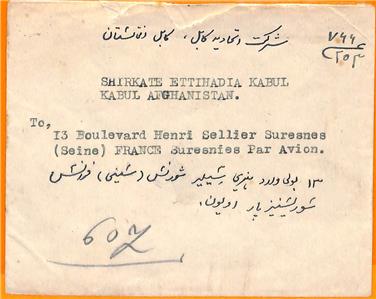 شرکت اتحادیه کابل، کابل افغانستان
۷۶۶
۲۵۳
SHIRKATE ETTIHADIA KABUL
KABUL AFGHANISTAN.
To,
13 Boulevard Henri Sellier Suresnes
(Seine) FRANCE Suresnies Par Avion.
۱۳ بولی وارد هنری شیلیر شورنش (شینی) فرانش
شورنشنیز پار اویون.
607